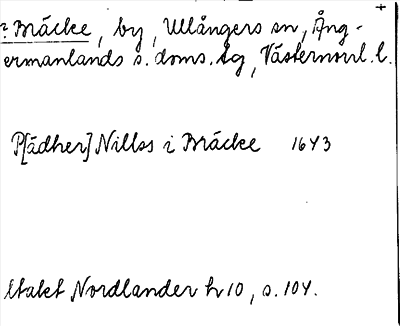 +
? Bräcke, by, Ullångers sn, Ång-
ermanlands s. doms. lg, Västernorrl. l.
P[ädher] Nillss i Bräcke 1643
Utakt Nordlander h 10, s. 104.